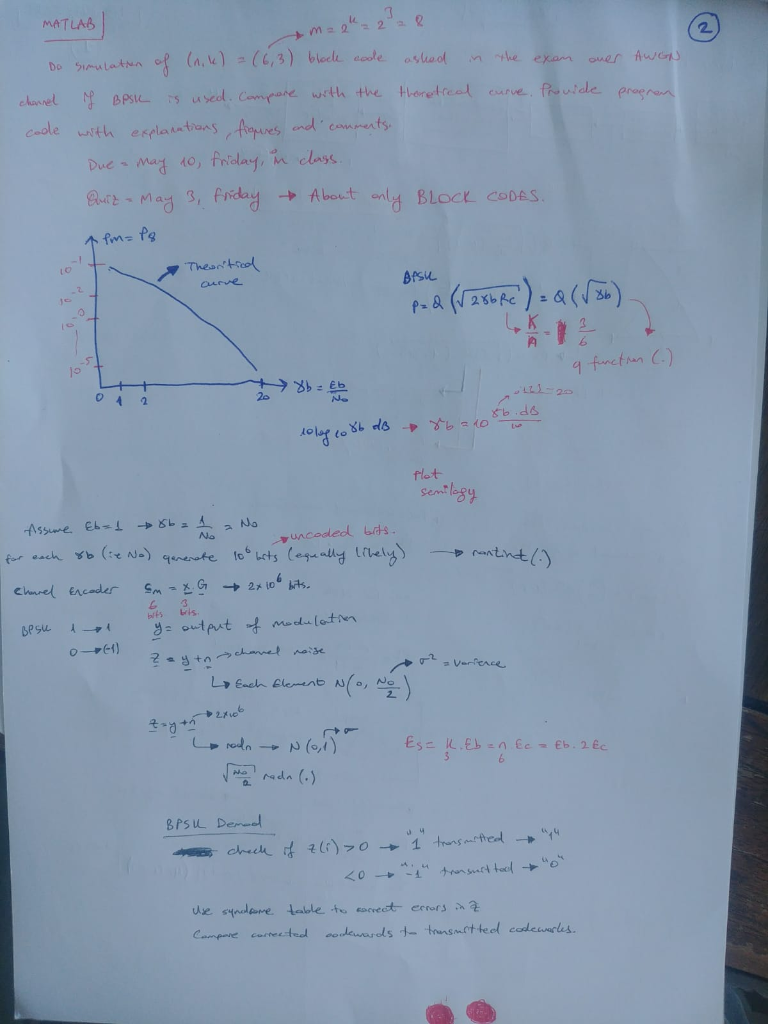 MATLAB
m = 2^k = 2^3 = 8
2
Do simulation of (n,k) = (6,3) block code asked in the exam over AWGN
channel if BPSK is used. Compare with the theoretical curve. Provide program
code with explanations, figures and comments.
Due = May 10, Friday, in class.
Quiz = May 3, Friday → About only BLOCK CODES.
Pm = PB
10^-1
10^-2
10^-3
10^-5
Theoritical
curve
0 1 2 20
γb = Eb/N0
BPSK
P = Q(√(2γbRc)) = Q(√γb)
K/n = 3/6
q function (.)
10log10 γb dB → γb = 10^(γb.dB/10)
= 20
Plot
semilogy
Assume Eb=1 → γb = 1/N0 = N0
uncoded bits.
for each γb (i.e N0) generate 10^6 bits (equally likely) → rantint(.)
Channel Encoder Cm = x.G → 2x10^6 bits.
6 bits 3 bits
BPSK 1 → 1 y = output of modulation
0 → (-1)
z = y + n → channel noise
↳ Each Element N(0, N0/2) → σ² = varience
z = y + n → 2x10^6
↳ radn → N(0,1) → σ
√(N0/2) radn (.)
Es = k.Eb = n Ec = Eb.2Ec
3 6
BPSK Demod
check if z(i) > 0 → "1" transmitted → "1"
<0 → "-1" transmitted → "0"
Use syndrome table to correct errors in z
Compare corrected codewords to transmitted codewords.